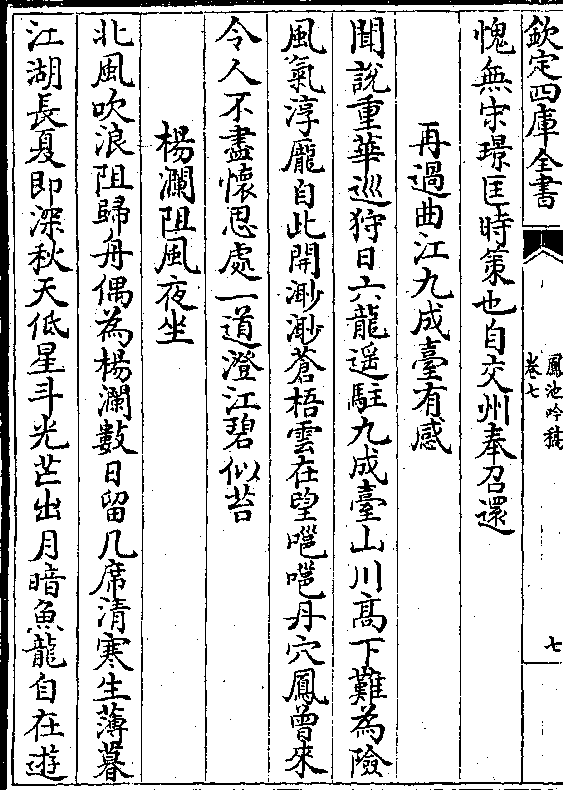 欽定四庫全書
鳳池吟稿
卷七
七
愧無宋璟匡時策也自交州奉召還
再過曲江九成臺有感
聞說重華巡狩日六龍遥駐九成臺山川髙下難為險
風氣淳龐自此開渺渺蒼梧雲在望嗈嗈丹穴鳳曾來
令人不盡懷思處一道澄江碧似苔
楊瀾阻風夜坐
北風吹浪阻歸舟偶為楊瀾數日留几席清寒生薄暮
江湖長夏即深秋天低星斗光芒出月暗魚龍自在遊